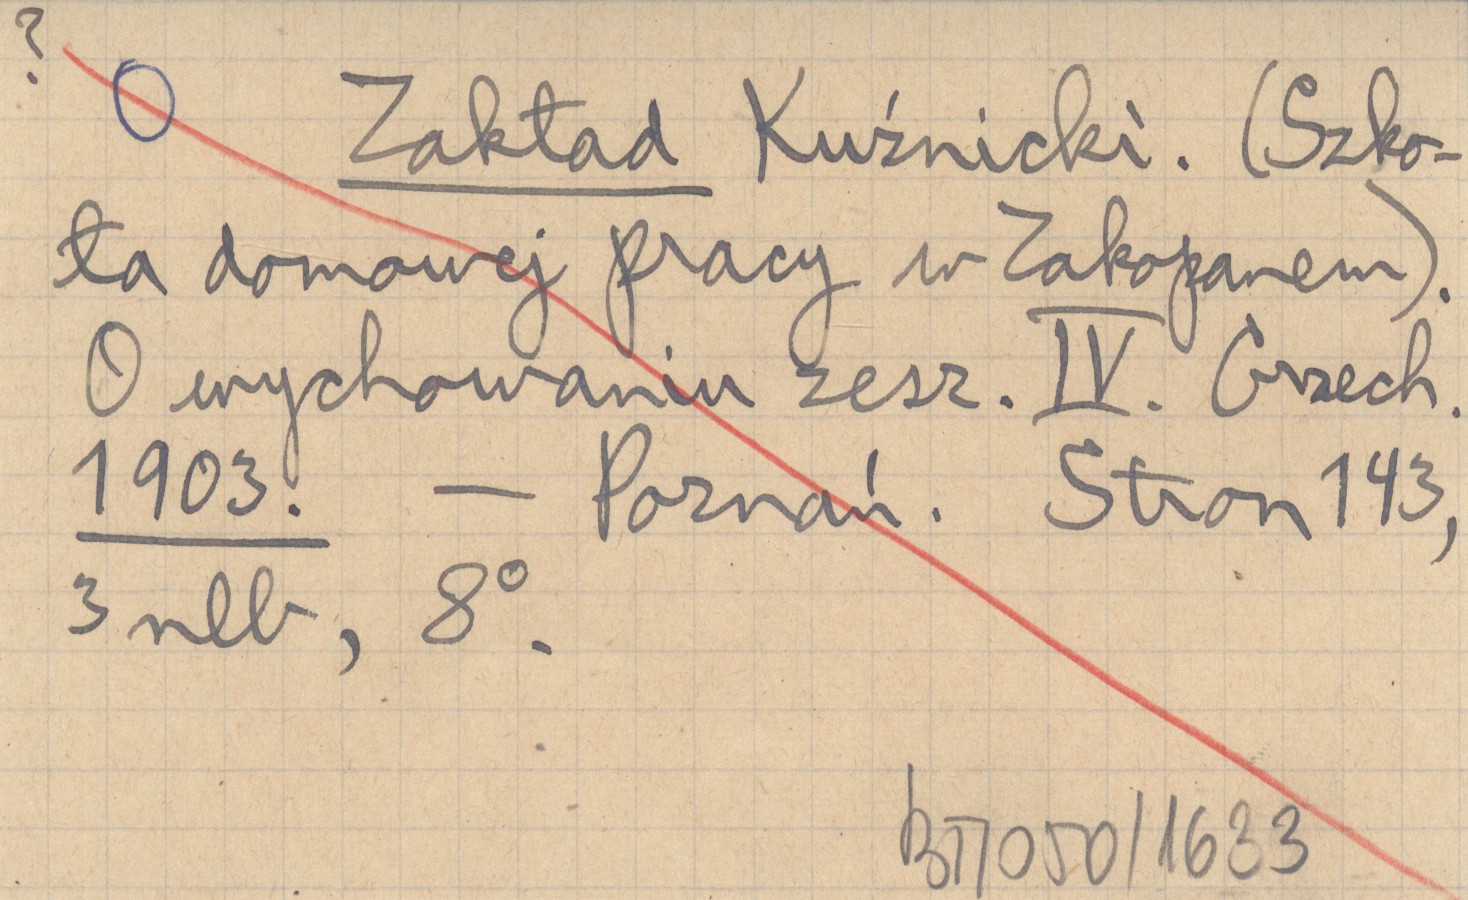 ?
O
Zakład Kuźnicki. (Szko-
ła domowej pracy w Zakopanem).
O wychowaniu zesz. IV. Grzech.
1903. — Poznań. Stron 143,
3 nlb, 8°.
/1633